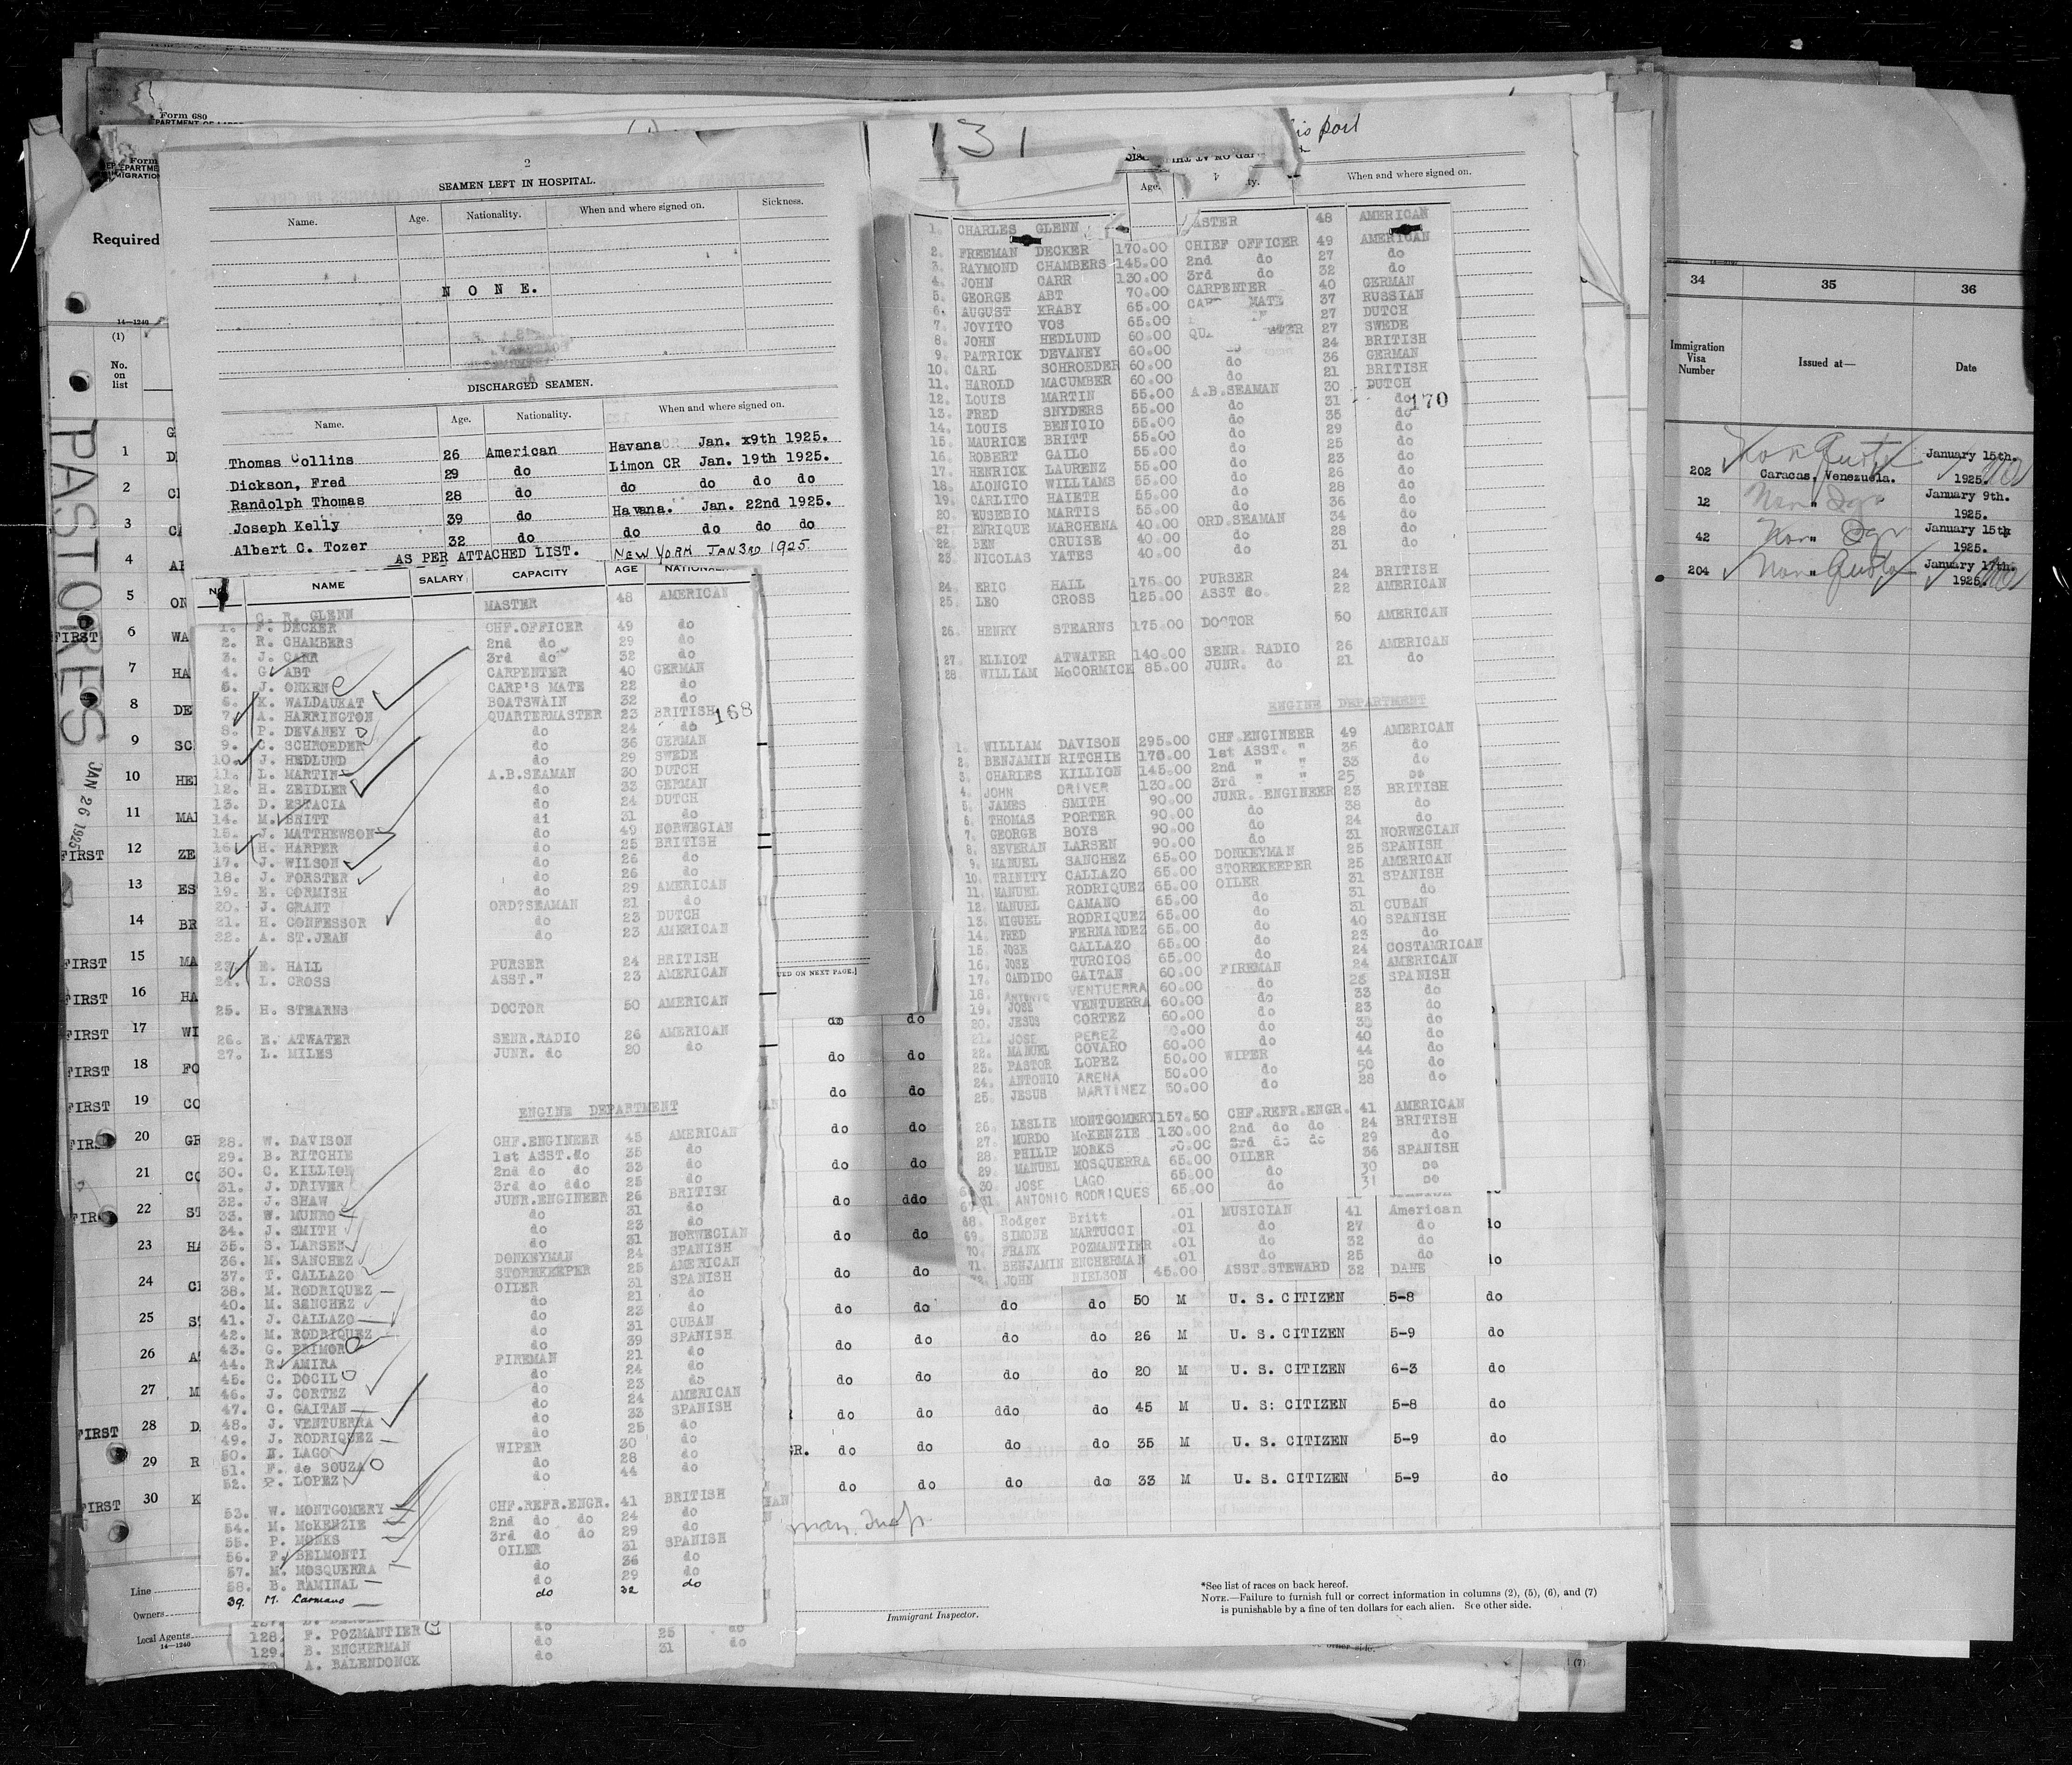 Form 680
Form
Required
PASTORES
JAN 26 1925
14—1240
(1)
No.
on
list
2
SEAMEN LEFT IN HOSPITAL.
Name. Age. Nationality. When and where signed on. Sickness.
N O N E.
DISCHARGED SEAMEN.
Name. Age. Nationality. When and where signed on.
Thomas Collins 26 American Havana Jan. x9th 1925.
Dickson, Fred 29 do Limon CR Jan. 19th 1925.
Randolph Thomas 28 do do do do do
Joseph Kelly 39 do Havana. Jan. 22nd 1925.
Albert C. Tozer 32 do do do do do
AS PER ATTACHED LIST. NEW YORK JAN 3RD 1925.
NAME SALARY CAPACITY AGE
C. R. GLENN MASTER 48 AMERICAN
1. F. DECKER CHF.OFFICER 49 do
2. R. CHAMBERS 2nd do 29 do
3. J. CARR 3rd do 32 do
4. G. ABT CARPENTER 40 GERMAN
5. J. ONKEN CARP'S MATE 22 do
6. K. WALDAUKAT BOATSWAIN 32 do
7. A. HARRINGTON QUARTERMASTER 23 BRITISH
168
8. P. DEVANEY do 24 do
9. C. SCHROEDER do 36 GERMAN
10. J. HEDLUND do 29 SWEDE
11. L. MARTIN A.B.SEAMAN 30 DUTCH
12. H. ZEIDLER do 33 GERMAN
13. D. ESTACIA do 24 DUTCH
14. M. BRITT di 31 do
15. J. MATTHEWSON do 49 NORWEGIAN
16. H. HARPER do 25 BRITISH
17. J. WILSON do 26 do
18. J. FORSTER do 26 do
19. E. CORMISH do 29 AMERICAN
20. J. GRANT ORD?SEAMAN 21 do
21. H. CONFESSOR do 23 DUTCH
22. A. ST.JEAN do 23 AMERICAN
23. E. HALL PURSER 24 BRITISH
24. L. CROSS ASST." 23 AMERICAN
25. H. STEARNS DOCTOR 50 AMERICAN
26. E. ATWATER SENR.RADIO 26 AMERICAN
27. L. MILES JUNR. do 20 do
ENGINE DEPARTMENT
28. W. DAVISON CHF.ENGINEER 45 AMERICAN
29. B. RITCHIE 1st ASST.do 35 do
30. C. KILLION 2nd do do 33 do
31. J. DRIVER 3rd do ddo 25 do
32. J. SHAW JUNR.ENGINEER 26 BRITISH
33. W. MUNRO do 31 do
34. J. SMITH do 23 do
35. S. LARSEN do 31 NORWEGIAN
36. M. SANCHEZ DONKEYMAN 24 SPANISH
37. T. CALLAZO STOREKEEPER 25 AMERICAN
38. M. RODRIQUEZ OILER 31 SPANISH
40. M. SANCHEZ do 21 do
41. J. CALLAZO do 23 do
42. M. RODRIQUEZ do 31 CUBAN
43. G. PRIMOR do 39 SPANISH
44. R. AMIRA FIREMAN 21 do
45. C. DOCIL do 24 do
46. J. CORTEZ do 23 do
47. C. GAITAN do 24 AMERICAN
48. J. VENTUERRA do 33 SPANISH
49. J. RODRIQUEZ do 25 do
50. LAGO WIPER 30 do
51. F. de SOUZA do 28 do
52. P. LOPEZ do 44 do
53. W. MONTGOMERY CHF.REFR.ENGR. 41 BRITISH
54. M. McKENZIE 2nd do do 24 do
55. P. MONKS 3rd do do 29 do
56. F. BELMONTI OILER 31 SPANISH
57. M. MOSQUERRA do 36 do
58. B. RAMINAL do 29 do
39. M. Camano do 32 do
128. F. POZMANTIER do 25 do
129. B. ENCHERMAN do 31 do
A. BALENDONCK
131
his port
Age. When and where signed on.
1. CHARLES GLENN ASTER 48 AMERICAN
2. FREEMAN DECKER 170.00 CHIEF OFFICER 49 AMERICAN
3. RAYMOND CHAMBERS 145.00 2nd do 27 do
4. JOHN CARR 130.00 3rd do 32 do
5. GEORGE ABT 70.00 CARPENTER 40 GERMAN
6. AUGUST KRABY 65.00 CARP MATE 37 RUSSIAN
7. JOVITO VOS 65.00 27 DUTCH
8. JOHN HEDLUND 60.00 QUA TER 27 SWEDE
9. PATRICK DEVANEY 60.00 do 24 BRITISH
10. CARL SCHROEDER 60.00 do 36 GERMAN
11. HAROLD MACUMBER 60.00 do 21 BRITISH
12. LOUIS MARTIN 55.00 A.B.SEAMAN 30 DUTCH
13. FRED SNYDERS 55.00 do 31 do
170
14. LOUIS BENICIO 55.00 do 35 do
15. MAURICE BRITT 55.00 do 29 do
16. ROBERT GAILO 55.00 do 25 do
17. HENRICK LAURENZ 55.00 do 23 do
18. ALONCIO WILLIAMS 55.00 do 26 do
19. CARLITO HAIETH 55.00 do 28 do
20. EUSEBIO MARTIS 55.00 do 36 do
21. ENRIQUE MARCHENA 40.00 ORD.SEAMAN 34 do
22. BEN CRUISE 40.00 do 28 do
23. NICOLAS YATES 40.00 do 31 do
24. ERIC HALL 175.00 PURSER 24 BRITISH
25. LEO CROSS 125.00 ASST do. 22 AMERICAN
26. HENRY STEARNS 175.00 DOCTOR 50 AMERICAN
27. ELLIOT ATWATER 140.00 SENR. RADIO 26 AMERICAN
28. WILLIAM McCORMICK 85.00 JUNR. do 21 do
ENGINE DEPARTMENT
1. WILLIAM DAVISON 295.00 CHF.ENGINEER 49 AMERICAN
2. BENJAMIN RITCHIE 175.00 1st ASST. " 36 do
3. CHARLES KILLION 145.00 2nd " " 33 do
4. JOHN DRIVER 130.00 3rd " " 25 do
5. JAMES SMITH 90.00 JUNR. ENGINEER 23 BRITISH
6. THOMAS PORTER 90.00 do 38 do
7. GEORGE BOYS 90.00 do 24 do
8. SEVERAN LARSEN 90.00 do 31 NORWEGIAN
9. MANUEL SANCHEZ 65.00 DONKEYMAN 25 SPANISH
10. TRINITY CALLAZO 65.00 STOREKEEPER 25 AMERICAN
11. MANUEL RODRIQUEZ 65.00 OILER 31 SPANISH
12. MANUEL CAMANO 65.00 do 31 do
13. MIGUEL RODRIQUEZ 65.00 do 31 CUBAN
14. FRED FERNANDEZ 65.00 do 40 SPANISH
15. JOSE CALLAZO 65.00 do 23 do
16. JOSE TURCIOS 65.00 do 24 COSTAMRICAN
17. CANDIDO GAITAN 60.00 FIREMAN 24 AMERICAN
18. ANTONIO VENTUERRA 60.00 do 25 SPANISH
19. JOSE VENTUERRA 60.00 do 33 do
20. JESUS CORTEZ 60.00 do 23 do
21. JOSE PEREZ do do
22. MANUEL COVARO 60.00 do 40 do
23. PASTOR LOPEZ 50.00 WIPER 44 do
24. ANTONIO ARENA 50.00 do 50 do
25. JESUS MARTINEZ 50.00 do 28 do
26. LESLIE MONTGOMERY 157.50 CHF.REFR.ENGR. 41 AMERICAN
27. MURDO McKENZIE 130.00 2nd do do 24 BRITISH
28. PHILIP MONKS 3rd do do 29 do
29. MANUEL MOSQUERRA 65.00 OILER 36 SPANISH
30 JOSE LAGO 65.00 do 30 do
31. ANTONIO RODRIQUES 65.00 do 31 do
68. Rodger Britt .01 MUSICIAN 41 American
69. SIMONE MARTUCCI .01 do 27 do
70. FRANK POZMANTIER .01 do 32 do
71. BENJAMIN ENCHERMAN .01 do 25 do
72. JOHN NIELSON 45.00 ASST.STEWARD 32 DANE
do do do do 50 M U. S. CITIZEN 5-8 do
do do do do 26 M U. S. CITIZEN 5-9 do
do do do do 20 M U. S. CITIZEN 6-3 do
do do ddo do 45 M U. S: CITIZEN 5-8 do
GR. do do do do 35 M U. S. CITIZEN 5-9 do
do do do do 33 M U. S. CITIZEN 5-9 do
Immigrant Inspector.
*See list of races on back hereof.
NOTE.—Failure to furnish full or correct information in columns (2), (5), (6), and (7)
is punishable by a fine of ten dollars for each alien. See other side.
34 35 36
Immigration
Visa
Number
Issued at—
Date
202 Caracas, Venezuela. January 15th. 1925.
12 " January 9th. 1925.
42 " January 15th 1925.
204 " January 17th. 1925.
1
2
3
4
5
FIRST 6 WA
7 HA
8 DE
9 SC
10 HE
11 MA
FIRST 12 ZE
13 ES
14 BR
FIRST 15 MA
FIRST 16 HA
FIRST 17 WI
FIRST 18 FO
FIRST 19 CO
FIRST 20 GR
21 CO
FIRST 22 ST
23 HA
24
25
26
27
FIRST 28
29
FIRST 30
Line
Owners
Local Agents
14—1240